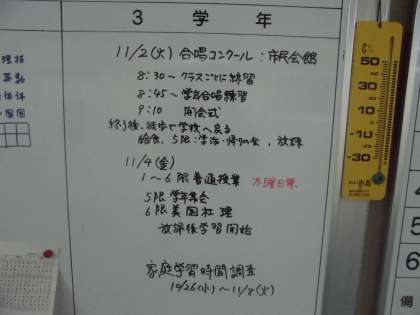 3 学 年
11/2(火) 合唱コンクール:市民会館
8:30~ クラスごとに練習
8:45~ 学年合唱練習
9:10 開会式
終了後、徒歩で学校へ戻る
給食、5限:学活・帰りの会、放課
11/4(金)
1~6限 普通授業 木曜日課
5限 学年集会
6限 英国社理
放課後学習開始
家庭学習時間調査
10/26(水)~11/8(火)
C
50
-10
-30
4
5
6
備